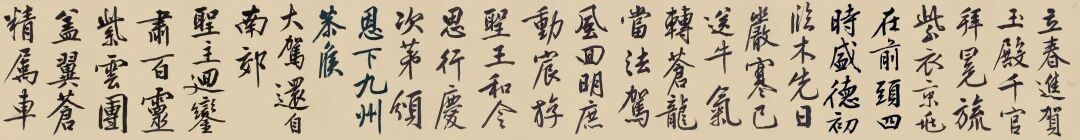 立春進賀
玉殿千官
拜冕旒
紫衣京兆
在前頭四
時盛德初
臨木先日
嚴寒已
送牛氣
轉蒼龍
當法駕
風回明庶
動宸游
聖王和令
思行慶
次第頒
恩下九州
恭候
大駕還自
南郊
聖主迴鑾
肅百靈
紫雲團
蓋翼蒼
精屬車